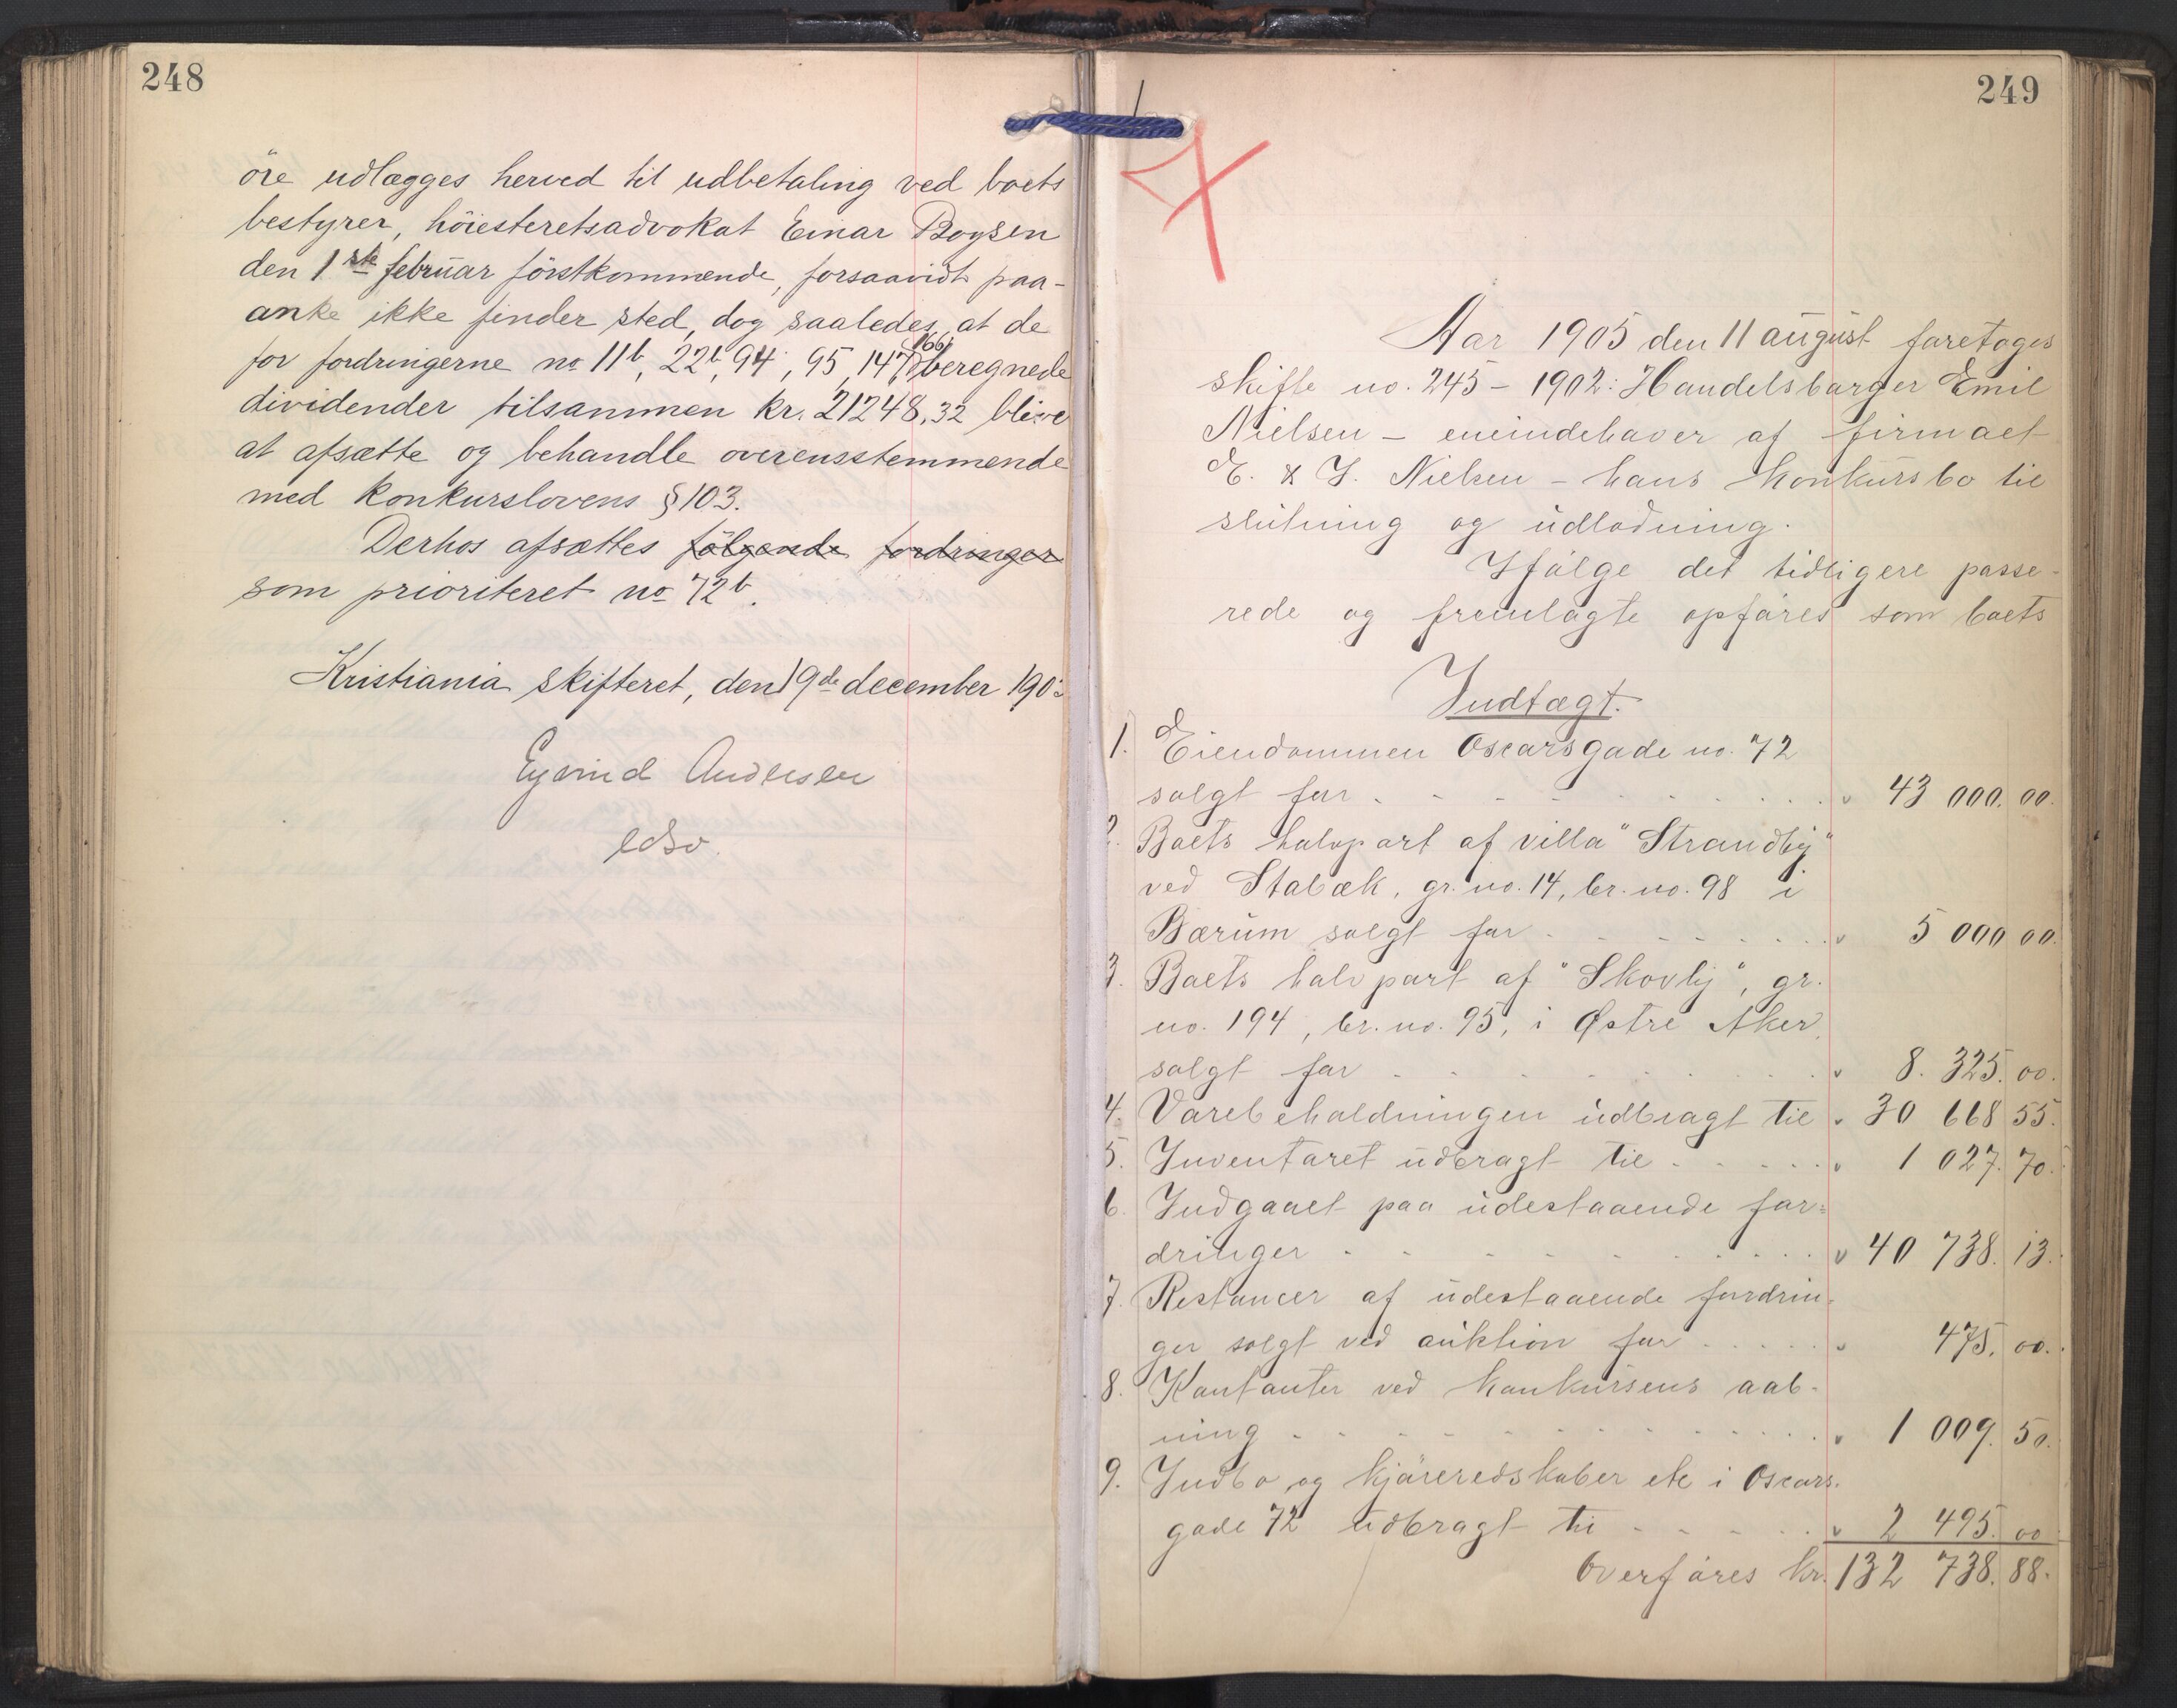 248
öre udlægges herved til udbetaling ved boets
bestyrer, höiesteretsadvokat Einar Boysen
den 1ste februar förstkommende, forsaavidt paa-
anke ikke finder sted, dog saaledes, at de
for fordringerne no 11b, 22b, 94, 95, 147, 166 beregnede
dividender tilsammen kr. 21248,32 blive
at afsætte og behandle overensstemmende
med konkurslovens § 103.
Derhos afsættes fölgende fordringer
som prioriteret no 72b.
Kristiania skifteret, den 19de december 190
Eyvind Andersen
249
Aar 1905 den 11 august foretoges
skifte no. 245 - 1902: Handelsborger Emil
Nielsen - eneindehaver af firmaet
E. & J. Nielsen - hans konkursbo til
slutning og udlodning.
Ifölge det tidligere passe-
rede og fremlagte opföres som boets
Indtægt.
1. Eiendommen Oscarsgade no. 72
solgt for " 43 000.00.
2. Boets halvpart af villa "Strandby"
ved Stabæk, gr. no. 14, br. no. 98 i
Bærum solgt for " 5 000 00.
3. Boets halvpart af "Skovly", gr.
no. 194, br. no. 95, i Østre Aker,
solgt for " 8. 325. 00.
4. Varebeholdningen udbragt til " 30 668 55.
5. Inventaret udbragt til " 1 027. 70.
6. Indgaaet paa udestaaende for=
dringer " 40 738. 13.
7. Restancer af udestaaende fordrin=
ger solgt ved auktion for " 475. 00.
8. Kontanter ved konkursens aab-
ning " 1 009. 50.
9. Indbo og kjöreredskaber etc i Oscars.
gade 72 udbragt til " 2 495. 00
Overföres kr. 132 738. 88.